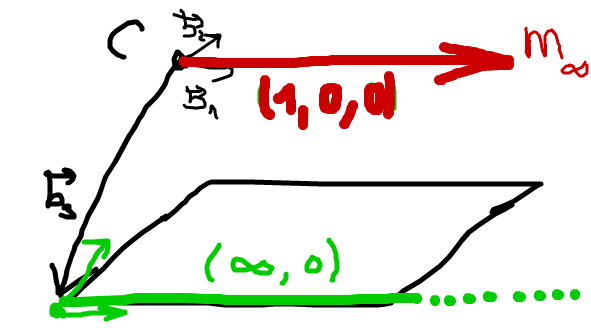 C
b⃗₂
m∞
b⃗₁
(1, 0, 0)
b⃗₃
(∞, 0)